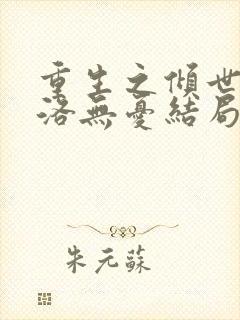 重生之傾世
洛無憂結局
朱元蘇